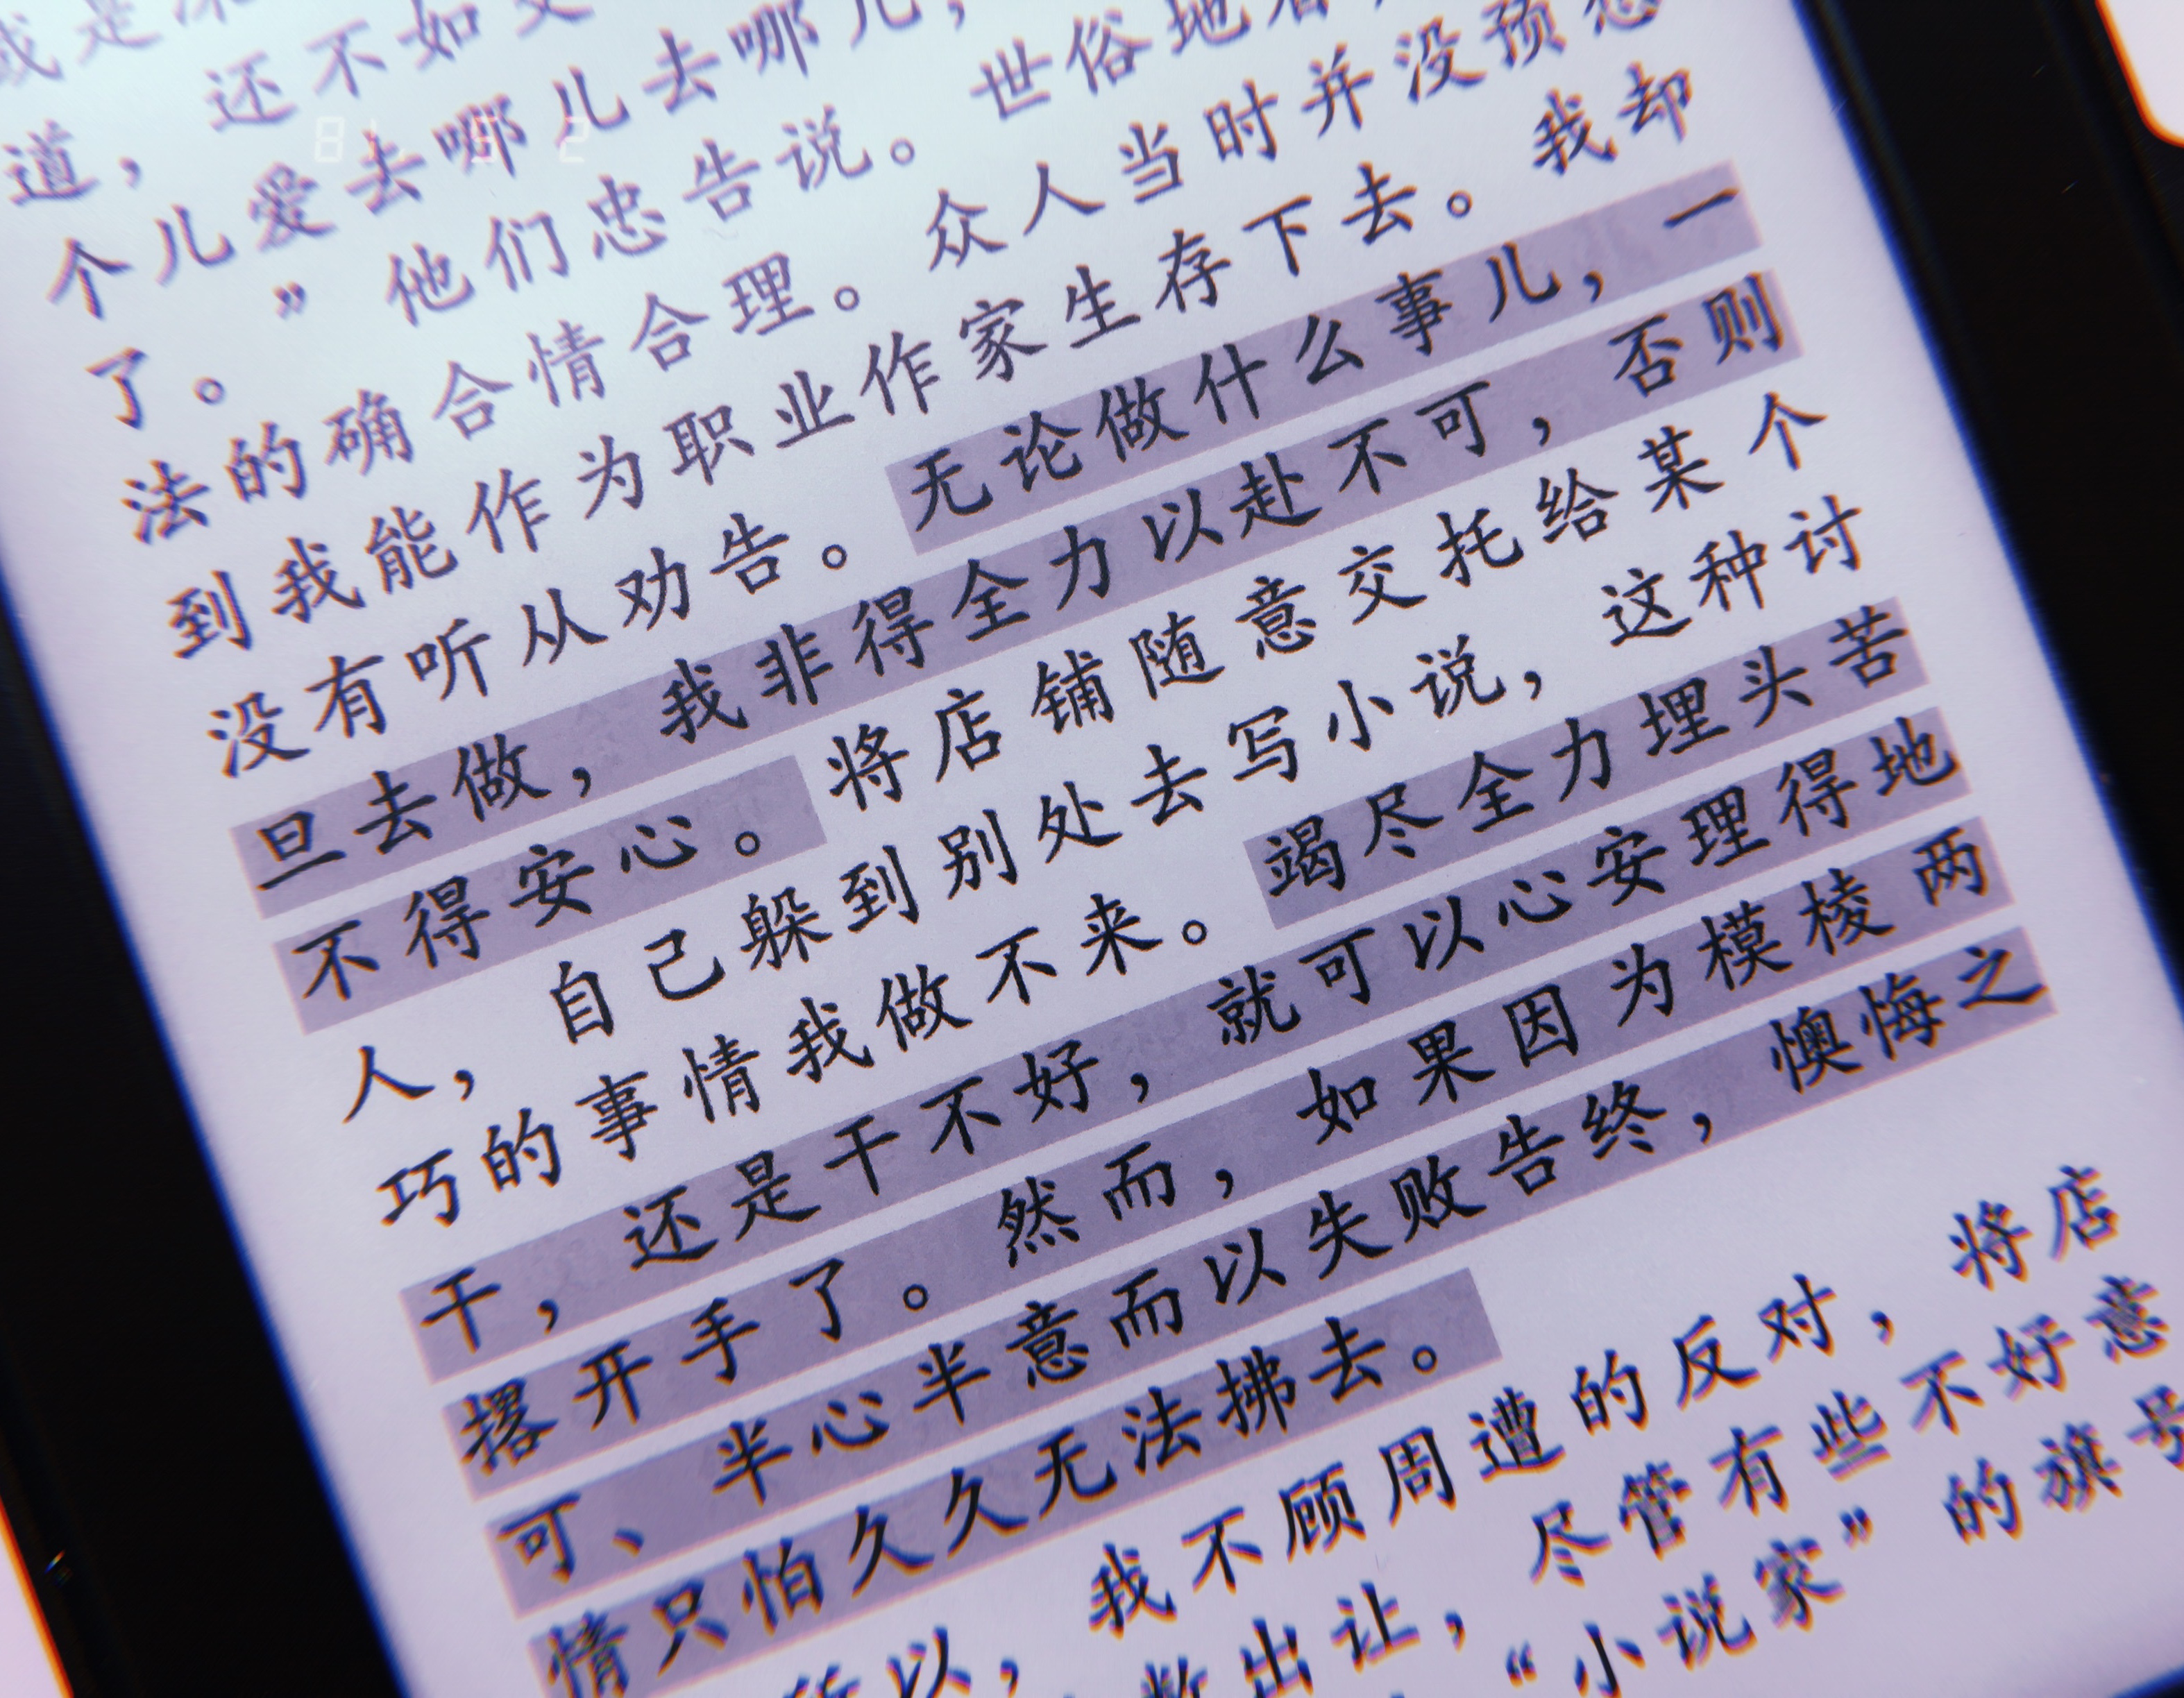 道，还不如
个儿爱去哪儿去哪儿，
了。”他们忠告说。世俗地
法的确合情合理。众人当时并没预
到我能作为职业作家生存下去。我却
没有听从劝告。无论做什么事儿，一
旦去做，我非得全力以赴不可，否则
不得安心。将店铺随意交托给某个
人，自己躲到别处去写小说，这种讨
巧的事情我做不来。竭尽全力埋头苦
干，还是干不好，就可以心安理得地
撂开手了。然而，如果因为模棱两
可、半心半意而以失败告终，懊悔之
情只怕久久无法拂去。
以，我不顾周遭的反对，将店
出让，尽管有些不好意
“小说家”的旗号